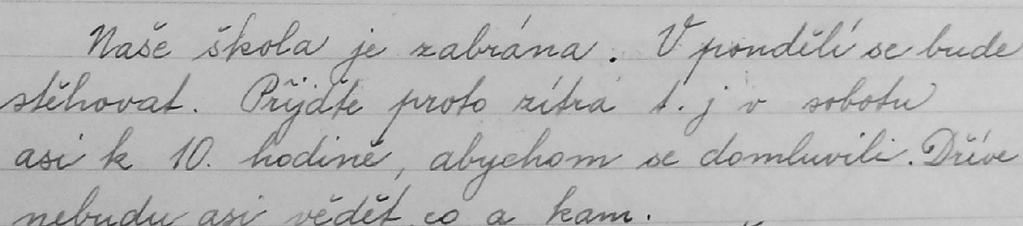 Naše škola je zabrána. V pondělí se bude
stěhovat. Přijďte proto zítra t. j v sobotu
asi k 10. hodině, abychom se domluvili. Dříve
nebudu asi vědět, co a kam.